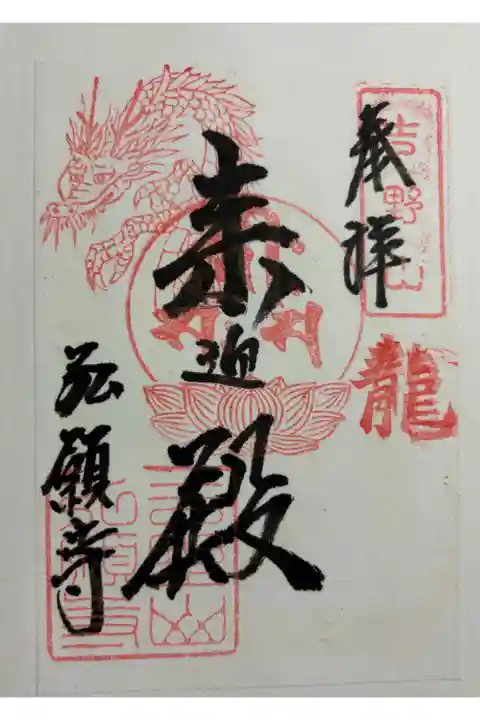 吉野山
奉拝
龍
来迎殿
弘願寺